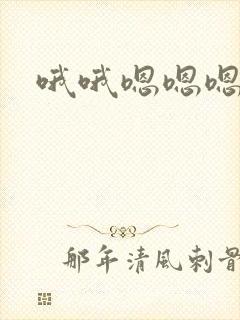 哦哦嗯嗯嗯
那年清风刺骨